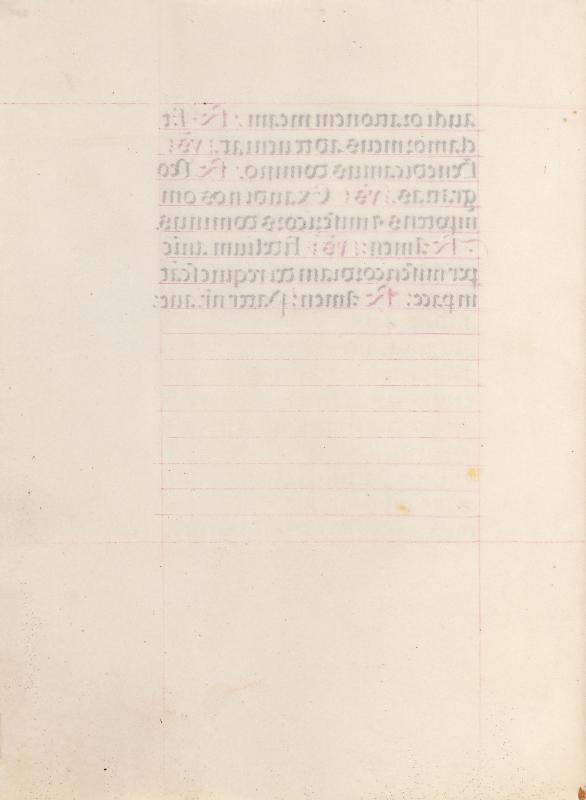 audi orationem meam. R. Et
clamor meus ad te veniat. vs:
Benedicamus domino. R. Deo
gratias. vs: Exaudi nos om
nipotens et misericors dominus.
R. Amen: vs: Fidelium anie
per misericordiam dei requiescāt
in pace: R. Amen: Pater nr. aue: